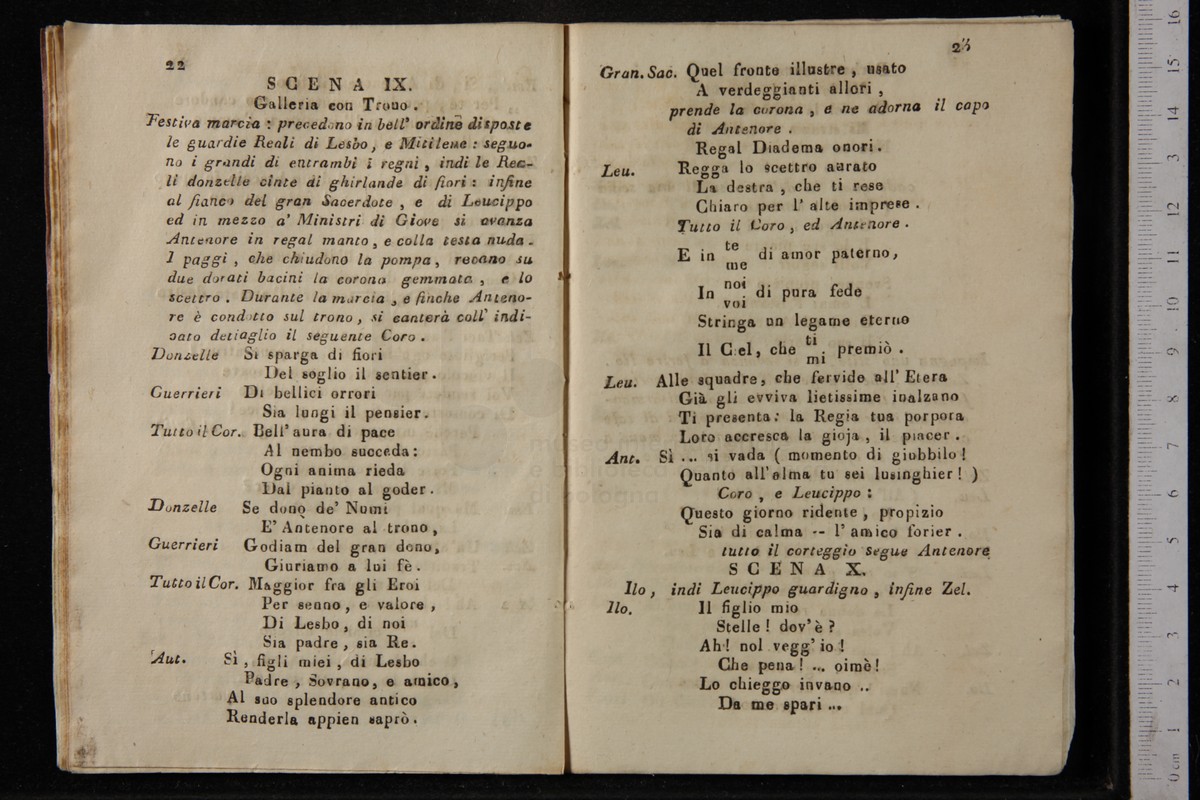 22
SCENA IX.
Galleria con Trono.
Festiva marcia : precedono in bell' ordine disposte
le guardie Reali di Lesbo, e Mitilene : seguo-
no i grandi di entrambi i regni, indi le Rea-
li donzelle cinte di ghirlande di fiori : infine
al fianco del gran Sacerdote, e di Leucippo
ed in mezzo a' Ministri di Giove si avanza
Antenore in regal manto, e colla testa nuda.
I paggi, che chiudono la pompa, recano su
due dorati bacini la corona gemmata, e lo
scettro. Durante la marcia, e finche Anteno-
re è condotto sul trono, si canterà coll' indi-
cato dettaglio il seguente Coro.
Donzelle Si sparga di fiori
Del soglio il sentier.
Guerrieri Di bellici orrori
Sia lungi il pensier.
Tutto il Cor. Bell' aura di pace
Al nembo succeda:
Ogni anima rieda
Dal pianto al goder.
Donzelle Se dono de' Numi
E' Antenore al trono,
Guerrieri Godiam del gran dono,
Giuriamo a lui fè.
Tutto il Cor. Maggior fra gli Eroi
Per senno, e valore,
Di Lesbo, di noi
Sia padre, sia Re.
Aut. Sì, figli miei, di Lesbo
Padre, Sovrano, e amico,
Al suo splendore antico
Renderla appien saprò.
23
Gran. Sac. Quel fronte illustre, usato
A verdeggianti allori,
prende la corona, e ne adorna il capo
di Antenore.
Regal Diadema onori.
Leu. Regga lo scettro aurato
La destra, che ti rese
Chiaro per l' alte imprese.
Tutto il Coro, ed Antenore.
E in te di amor paterno,
me
In noi di pura fede
voi
Stringa un legame eterno
Il Ciel, che ti premiò.
mi
Leu. Alle squadre, che fervide all' Etera
Già gli evviva lietissime inalzano
Ti presenta: la Regia tua porpora
Loro accresca la gioja, il piacer.
Ant. Sì ... si vada ( momento di giubbilo!
Quanto all' alma tu sei lusinghier! )
Coro, e Leucippo :
Questo giorno ridente, propizio
Sia di calma -- l' amico forier.
tutto il corteggio segue Antenore
SCENA X.
Ilo, indi Leucippo guardigno, infine Zel.
Ilo. Il figlio mio
Stelle! dov' è?
Ah! nol vegg' io!
Che pena! ... oimè!
Lo chieggo invano ..
Da me spari ...
museo
e biblioteca
di bologna
0 cm 1 2 3 4 5 6 7 8 9 10 11 12 13 14 15 16